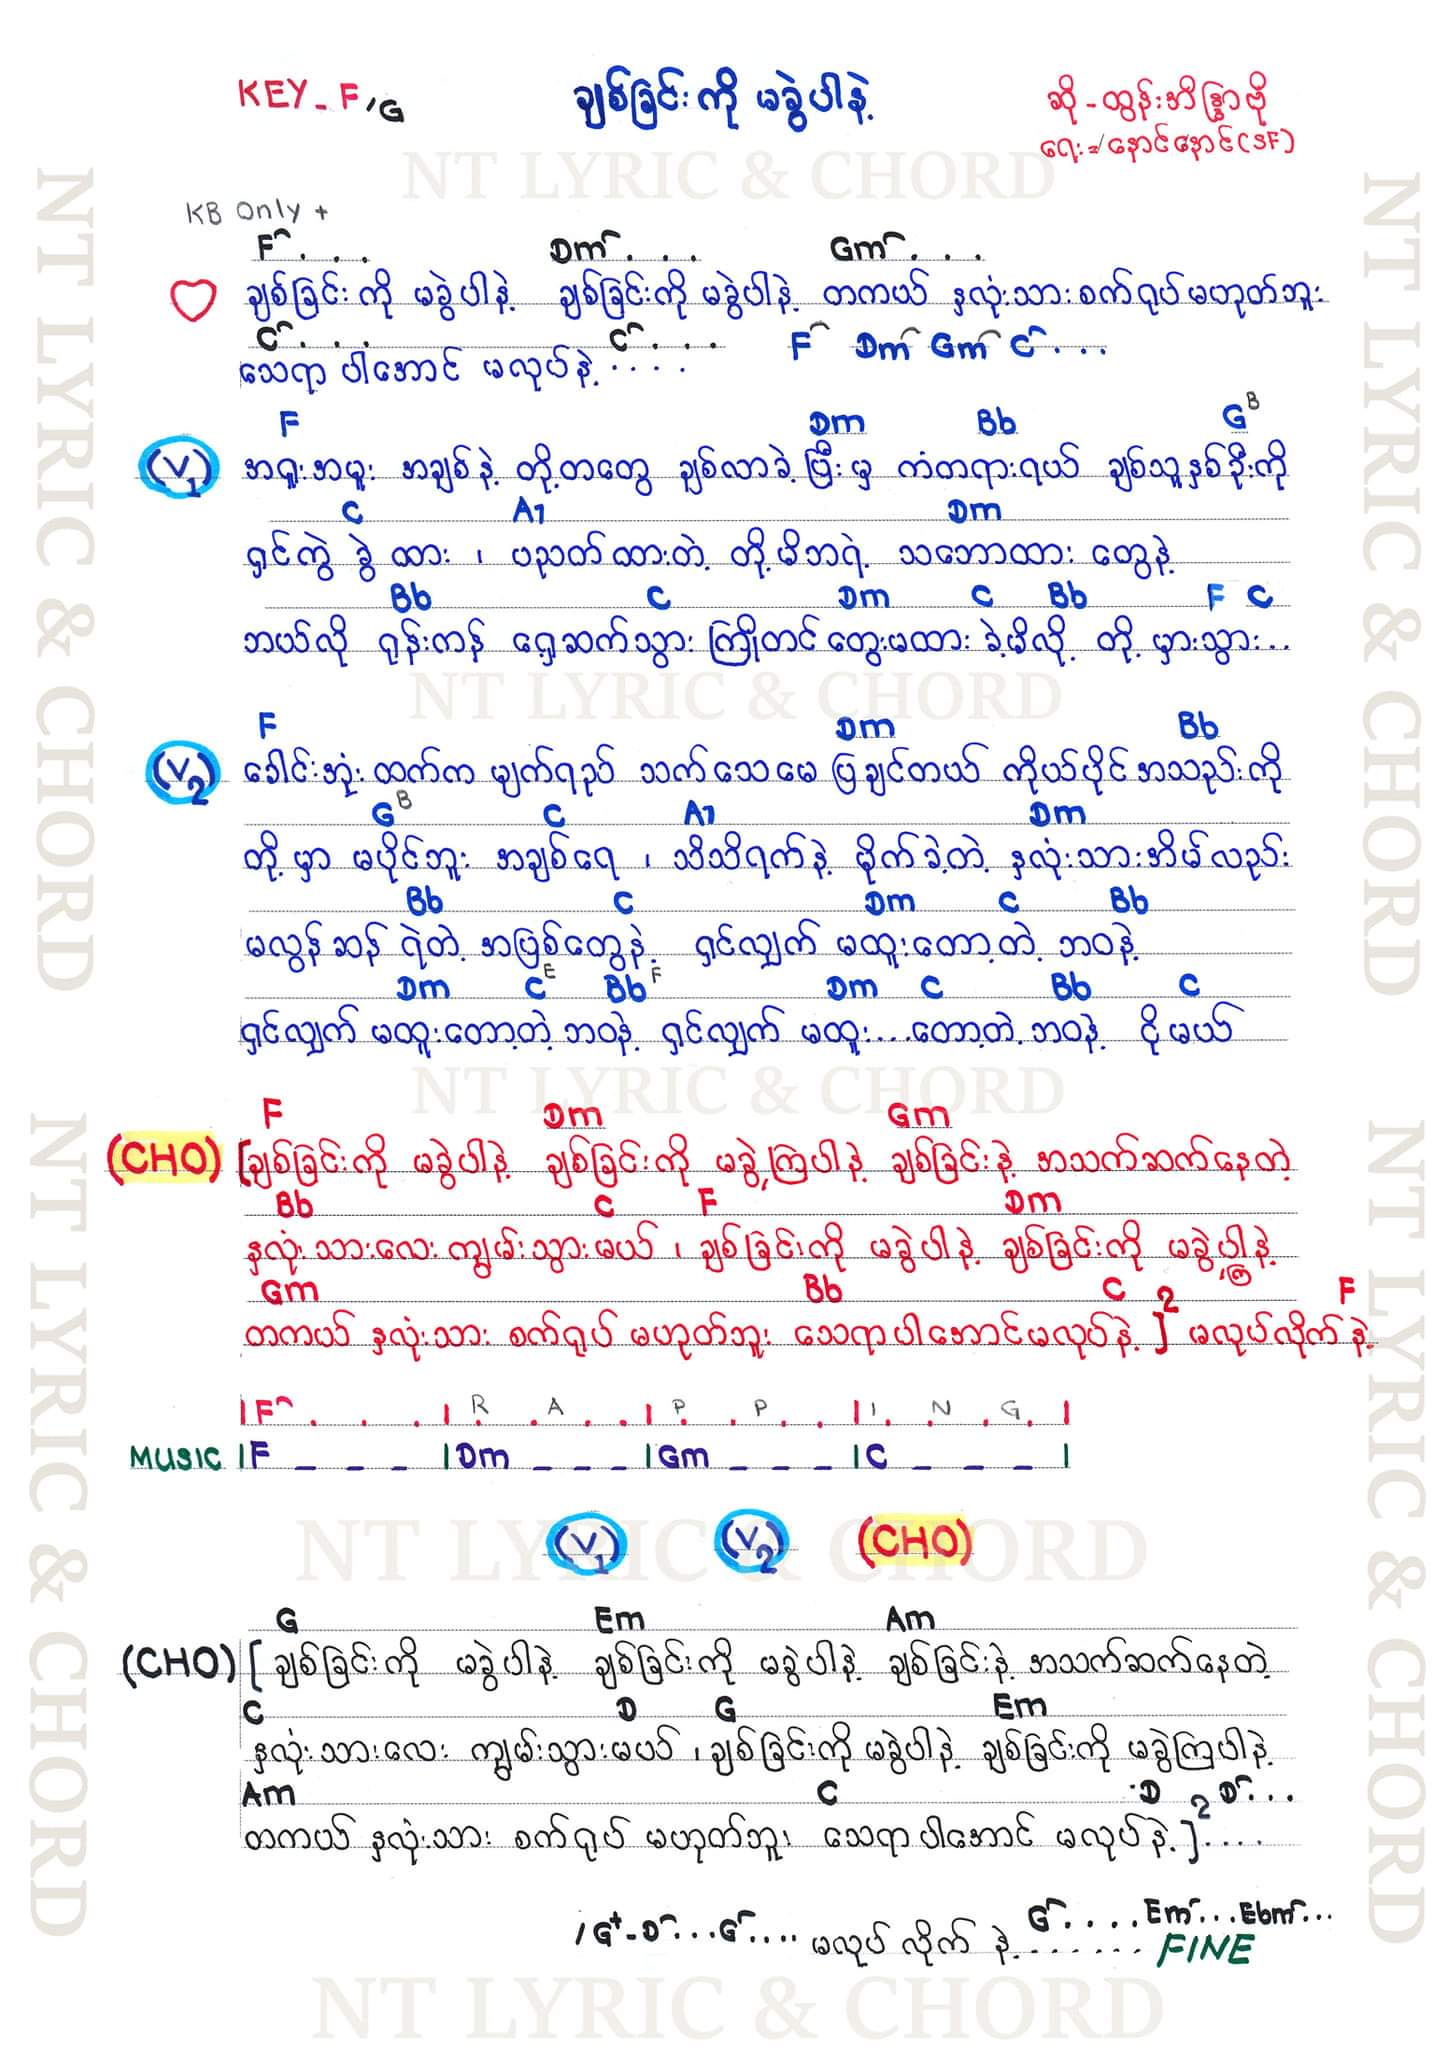 KEY - F / G
ချစ်ခြင်းကို မခွဲပါနဲ့
ဆို - ထွန်းအိန္ဒြာဗို
ရေး = နောင်နောင် (SF)
NT LYRIC & CHORD
KB Only +
F . . . Dm . . . Gm . . .
ချစ်ခြင်းကို မခွဲပါနဲ့ ချစ်ခြင်းကို မခွဲပါနဲ့ တကယ် နှလုံးသားစက်ရုပ်မဟုတ်ဘူး
C . . . C . . . F Dm Gm C . . .
သေရာပါအောင် မလုပ်နဲ့ . . . .
F Dm Bb G B
(V1) အရူးအမူး အချစ်နဲ့ တို့တတွေ ချစ်လာခဲ့ပြီးမှ ကံတရားရယ် ချစ်သူနှစ်ဦးကို
C A7 Dm
ရှင်ကွဲ ခွဲထား ၊ ပညတ်ထားတဲ့ တို့မိဘရဲ့ သဘောထားတွေနဲ့
Bb C Dm C Bb F C
ဘယ်လို ရုန်းကန် ရှေ့ဆက်သွား ကြိုတင်တွေးမထားခဲ့မိလို့ တို့မှားသွား...
NT LYRIC & CHORD
F Dm Bb
(V2) ခေါင်းအုံးထက်က မျက်ရည် သက်သေမေပြချင်တယ် ကိုယ်ပိုင်အသည်းကို
G B C A7 Dm
တို့မှာ မပိုင်ဘူး အချစ်ရေ ၊ သိသိရက်နဲ့ မိုက်ခဲ့တဲ့ နှလုံးသားအိမ်လည်း
Bb C Dm C Bb
မလွန်ဆန်ရဲတဲ့ အဖြစ်တွေနဲ့ ရှင်လျှက် မထူးတော့တဲ့ ဘဝနဲ့
Dm C E Bb F Dm C Bb C
ရှင်လျှက် မထူးတော့တဲ့ ဘဝနဲ့ ရှင်လျှက် မထူး...တော့တဲ့ ဘဝနဲ့ ငိုမယ်
NT LYRIC & CHORD
F Dm Gm
(CHO) [ချစ်ခြင်းကို မခွဲပါနဲ့ ချစ်ခြင်းကို မခွဲကြပါနဲ့ ချစ်ခြင်းနဲ့ အသက်ဆက်နေတဲ့
Bb C F Dm
နှလုံးသားလေး ကျွမ်းသွားမယ် ၊ ချစ်ခြင်းကို မခွဲပါနဲ့ ချစ်ခြင်းကို မခွဲကြပါနဲ့
Gm Bb C F
တကယ် နှလုံးသား စက်ရုပ် မဟုတ်ဘူး သေရာပါအောင်မလုပ်နဲ့ ]2 မလုပ်လိုက်နဲ့
| F . . . | R . A . . | P . P . . | I . N . G . |
MUSIC | F _ _ _ | Dm _ _ _ | Gm _ _ _ | C _ _ _ |
(V1) (V2) (CHO)
NT LYRIC & CHORD
G Em Am
(CHO) [ ချစ်ခြင်းကို မခွဲပါနဲ့ ချစ်ခြင်းကို မခွဲပါနဲ့ ချစ်ခြင်းနဲ့ အသက်ဆက်နေတဲ့
C D G Em
နှလုံးသားလေး ကျွမ်းသွားမယ် ၊ ချစ်ခြင်းကို မခွဲပါနဲ့ ချစ်ခြင်းကို မခွဲကြပါနဲ့
Am C D D . . .
တကယ် နှလုံးသား စက်ရုပ် မဟုတ်ဘူး သေရာပါအောင် မလုပ်နဲ့ ]2 . . . .
G . . . . Em . . . Ebm . . .
/ G+ - D . . . G . . . . မလုပ်လိုက်နဲ့ . . . . . . . FINE
NT LYRIC & CHORD
NT LYRIC & CHORD
NT LYRIC & CHORD
NT LYRIC & CHORD
NT LYRIC & CHORD